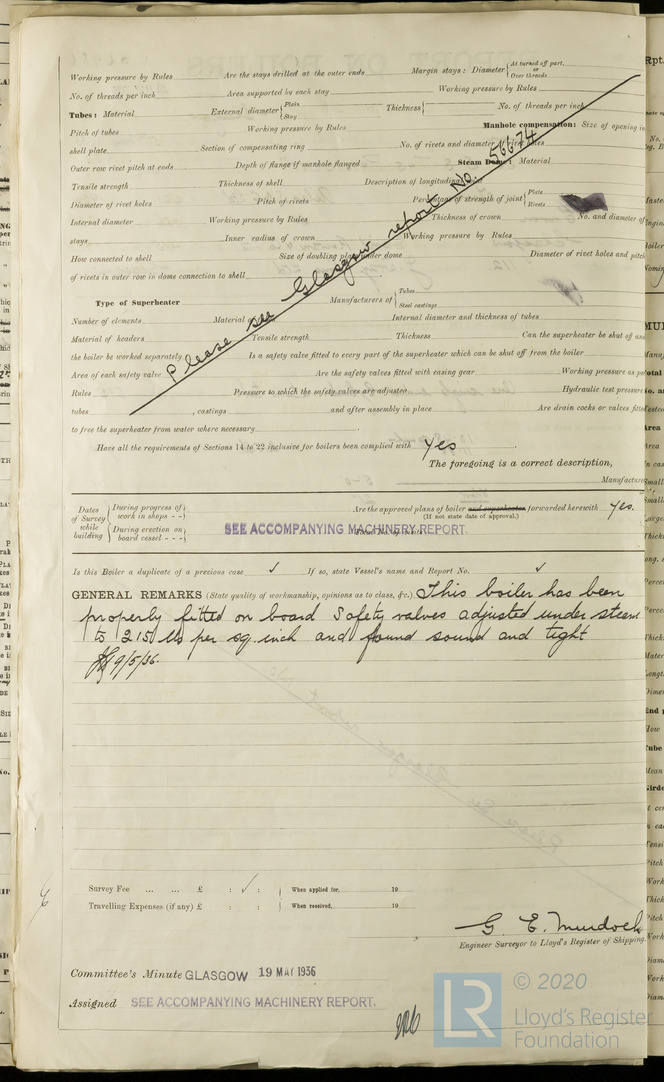 Working pressure by Rules Are the stays drilled at the outer ends Margin stays: Diameter { At turned off part, or Over threads
No. of threads per inch Area supported by each stay Working pressure by Rules
Tubes: Material External diameter { Plain Stay Thickness { No. of threads per inch
Pitch of tubes Working pressure by Rules Manhole compensation: Size of opening in
shell plate Section of compensating ring No. of rivets and diameter of rivet holes
Outer row rivet pitch at ends Depth of flange if manhole flanged Steam Dome: Material
Tensile strength Thickness of shell Description of longitudinal
Diameter of rivet holes Pitch of rivets Percentage of strength of joint { Plate Rivets
Internal diameter Working pressure by Rules Thickness of crown No. and diameter of
stays Inner radius of crown Working pressure by Rules
How connected to shell Size of doubling plate under dome Diameter of rivet holes and pitch
of rivets in outer row in dome connection to shell
Please see Glasgow report No. 56674
Type of Superheater Manufacturers of { Tubes Steel castings
Number of elements Material Internal diameter and thickness of tubes
Material of headers Tensile strength Thickness Can the superheater be shut off and
the boiler be worked separately Is a safety valve fitted to every part of the superheater which can be shut off from the boiler
Area of each safety valve Are the safety valves fitted with easing gear Working pressure as per
Rules Pressure to which the safety valves are adjusted Hydraulic test pressure
tubes , castings and after assembly in place Are drain cocks or valves fitted
to free the superheater from water where necessary
Have all the requirements of Sections 14 to 22 inclusive for boilers been complied with Yes
The foregoing is a correct description,
Manufacturer
Dates of Survey while building { During progress of work in shops - - } Are the approved plans of boiler and superheater forwarded herewith Yes.
(If not state date of approval.)
{ During erection on board vessel - - - } SEE ACCOMPANYING MACHINERY REPORT.
Is this Boiler a duplicate of a previous case ✓ If so, state Vessel's name and Report No. ✓
GENERAL REMARKS (State quality of workmanship, opinions as to class, &c.) This boiler has been
properly fitted on board Safety valves adjusted under steam
to 215 lbs per sq. inch and found sound and tight
9/5/36.
Survey Fee ... ... £ : ✓ : When applied for, 19
Travelling Expenses (if any) £ : : When received, 19
G. E. Murdoch
Engineer Surveyor to Lloyd's Register of Shipping.
Committee's Minute GLASGOW 19 MAY 1936
Assigned SEE ACCOMPANYING MACHINERY REPORT.
LR © 2020
Lloyd's Register
Foundation